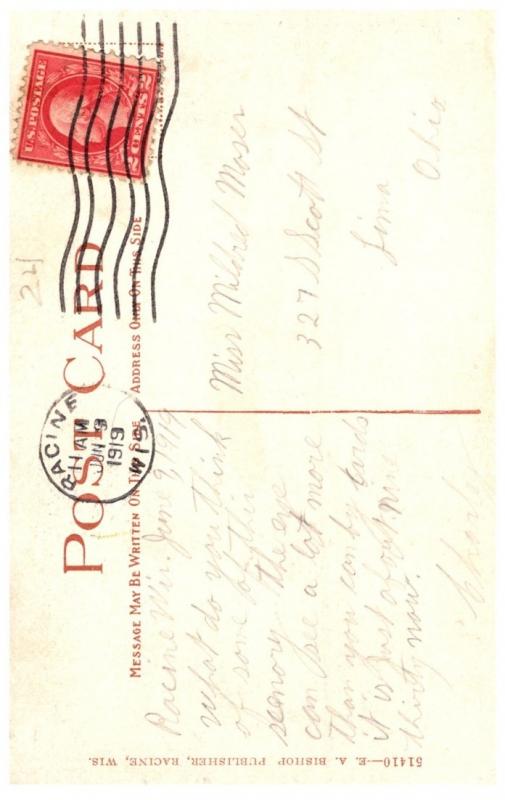 U.S. POSTAGE
2 CENTS 2
RACINE
11 AM
JUN 9
1919
WIS.
POST CARD
MESSAGE MAY BE WRITTEN ON THIS SIDE
ADDRESS ONLY ON THIS SIDE
24
Racine Wis. June 9/19
What do you think
of some of this
scenory the eye
can see a lot more
than you can by cards
it is just about nine
thirty now.
Miss Mildred Moser
327 S Scott St
Lima
Ohio
51410—E. A. BISHOP PUBLISHER, RACINE, WIS.